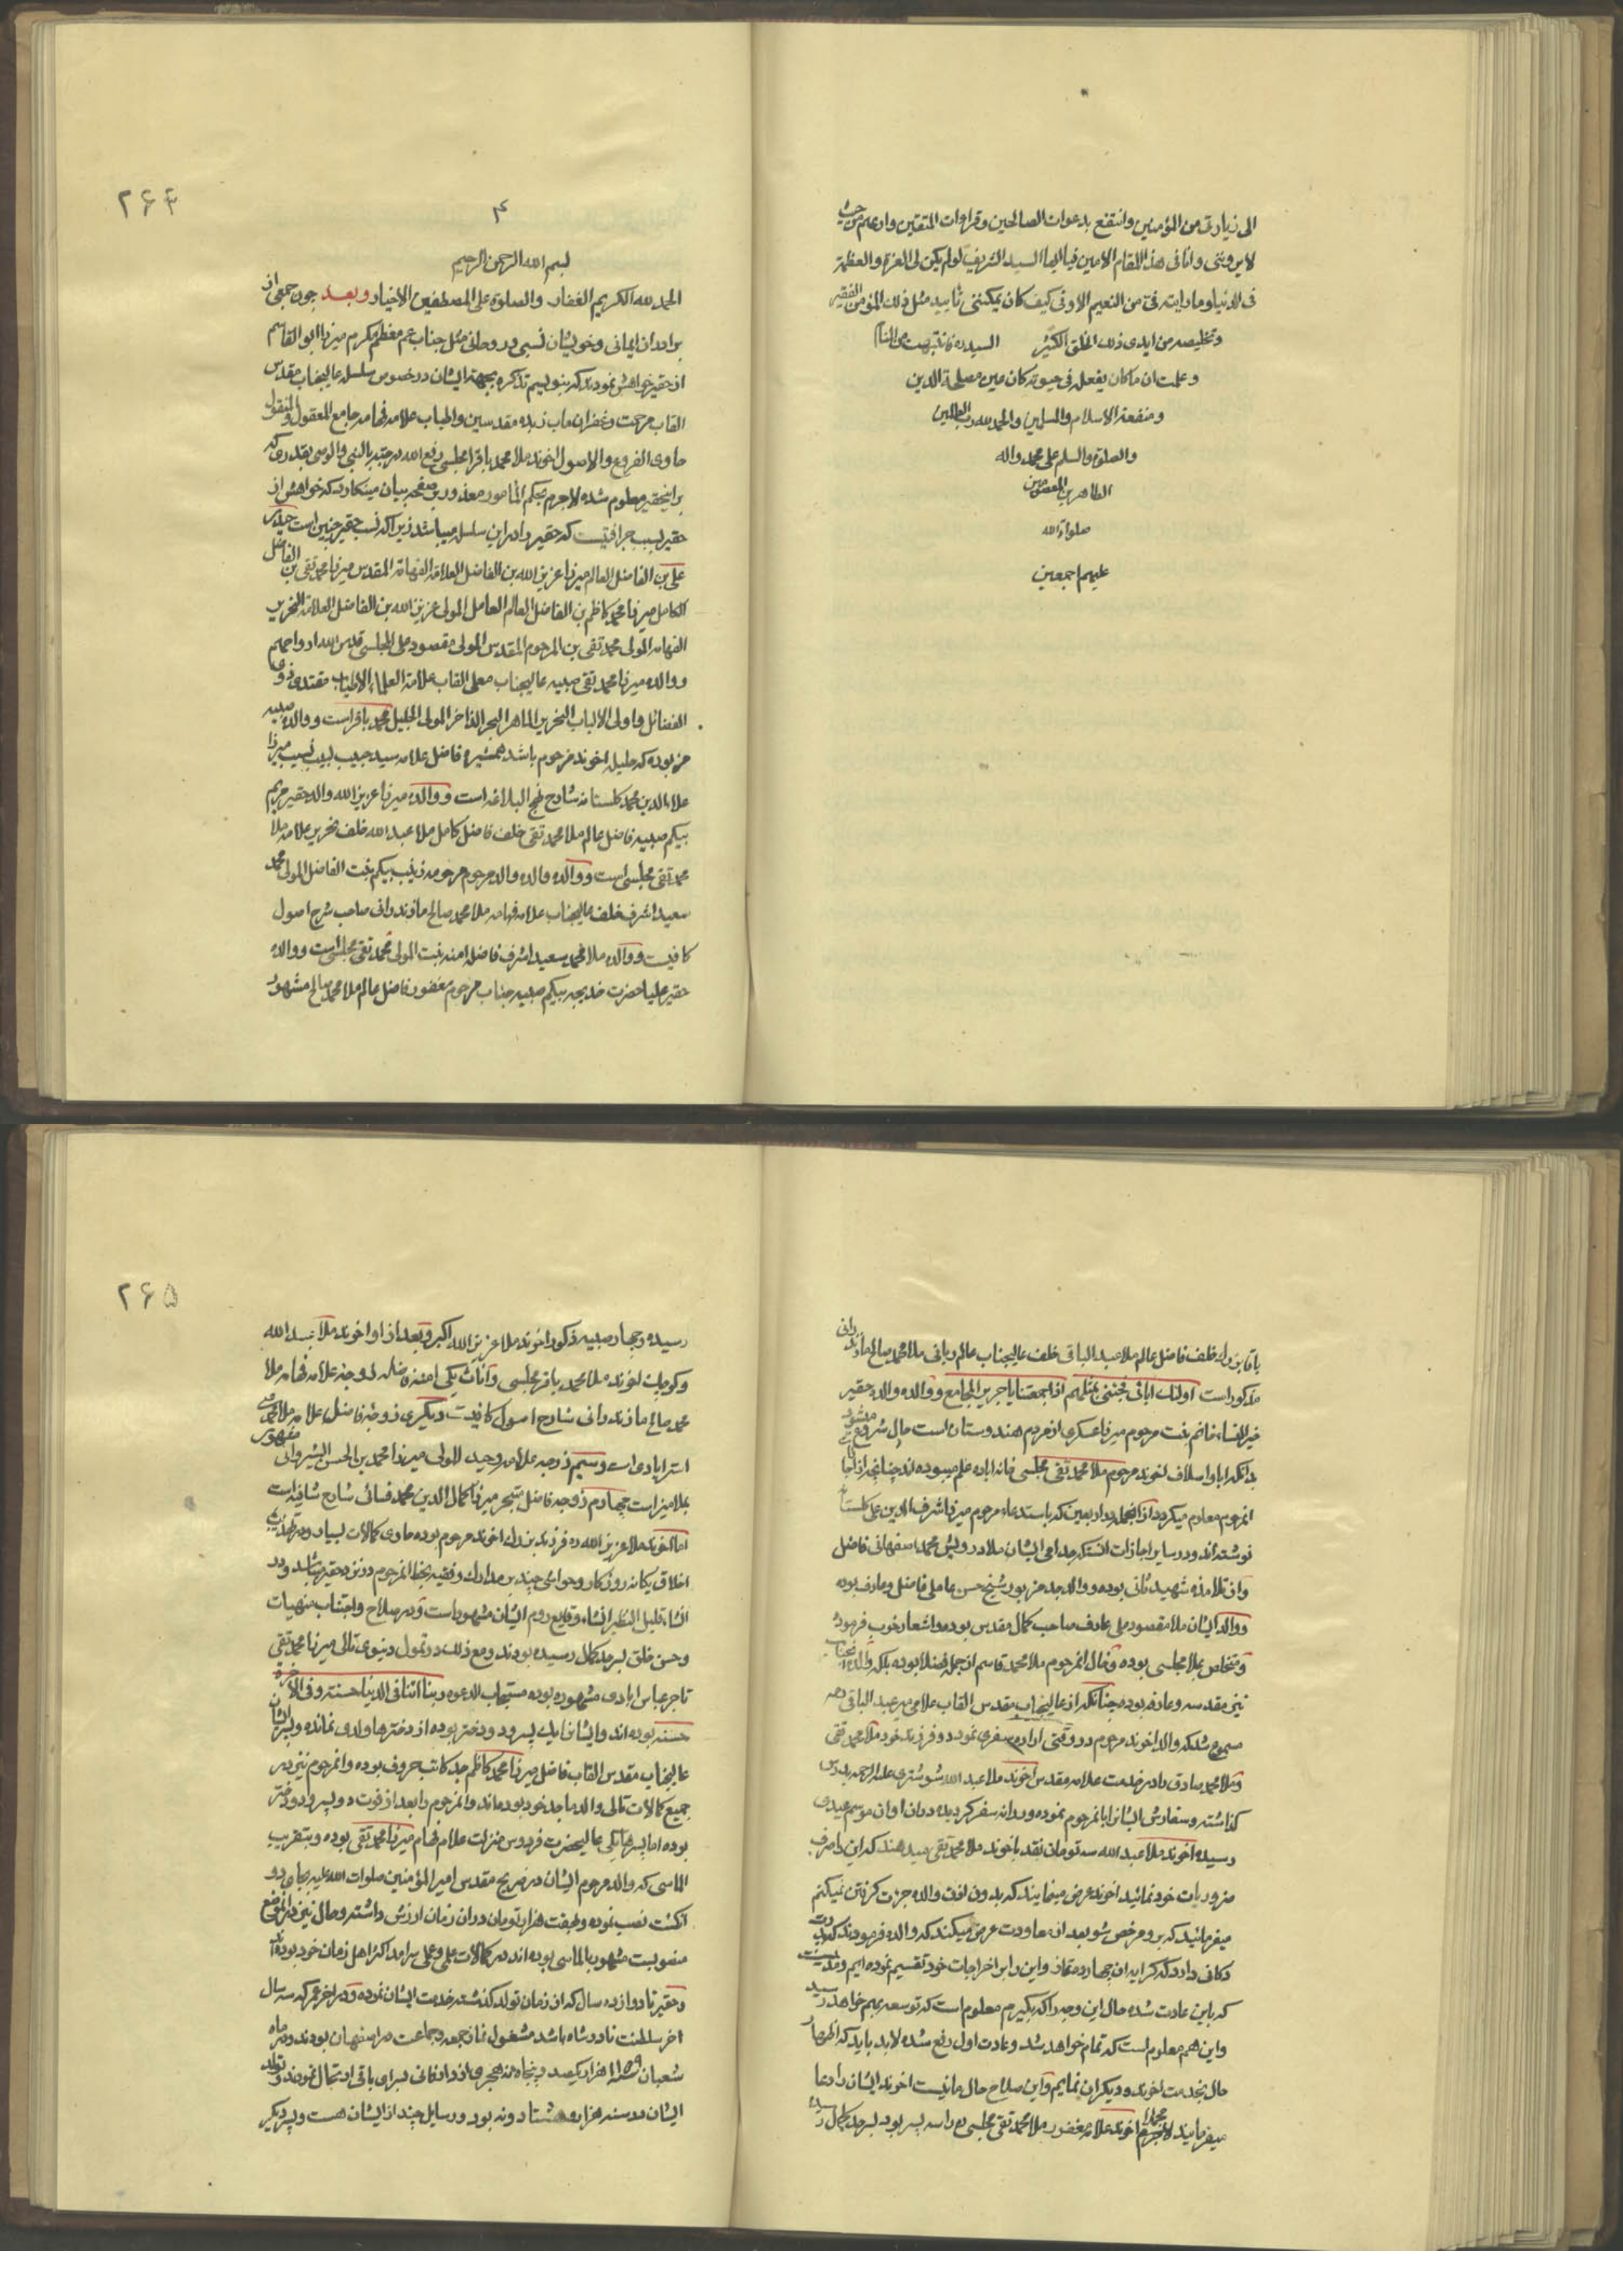 الی زیارتی من المؤمنین وانتفع بدعوات الصالحین وقراءات المتقین وادعیهم من حیث
لا یرونی وانا فی هذا المقام الامین فیا ایها السید الشریف لو لم یکن لی العزة والعظمة
فی الدنیا وما رایته فی من النعیم الاوفی کیف کان یمکننی تایید مثل ذلک المؤمن الفقیر
وتخلیصه من ایدی ذلک الخلق الکثیر السیده فانتبهت من المنام
وعلمت ان ما کان یفعله فی حیوته کان عین مصلحة الدین
ومنفعة الاسلام والمسلمین والحمد لله رب العالمین
والصلوة والسلم علی محمد واله
الطاهرین المعصومین
صلوات الله
علیهم اجمعین
۲۶۴
۴
بسم الله الرحمن الرحیم
الحمد لله الکریم الغفار والصلوة علی المصطفین الاخیار وبعد چون جمعی از
برادران ایمانی وخویشان نسبی و روحانی مثل جناب عم معظم مکرم میرزا ابو القاسم
از حقیر خواهش نمودند که بنویسم تذکره بجهة ایشان در خصوص سلسله عالیجناب مقدس
القاب مرحمت وغفران ماب زبده مقدسین واطیاب علامه فهامه جامع المعقول والمنقول
حاوی الفروع والاصول اخوند ملا محمد باقر مجلسی رفع الله درجته بالنبی والوصی بقدری که
براینحقیر معلوم شده لاجرم بحکم المامور معذور بن صفحه بیان مینکارد که خواهش از
حقیر بسبب قرابتیست که حقیر را در این سلسله میباشد زیرا که نسب حقیر چنین است حیدر
علی بن الفاضل العالم میرزا عزیز الله بن الفاضل العلامة الفهامة المقدس میرزا محمد تقی بن الفاضل
الکامل میرزا محمد کاظم بن الفاضل العالم العامل المولی عزیز الله بن الفاضل العلامة النحریر
الفهامه المولی محمد تقی بن المرحوم المقدس المولی مقصود علی المجلسی قدس الله ارواحهم
ووالده میرزا محمد تقی صبیه عالیجناب معلی القاب علامة العلماء الاطیاب مقتدی ذوی
الفضائل واولی الالباب النحریر الماهر البحر الذاخر المولی الجلیل محمد باقر است ووالده صبیه
مزبوده که حلیله اخوند مرحوم باشد همشیره فاضل علامه سید حبیب لبیب نسیب میرزا
علاء الدین محمد کلستانه شارح نهج البلاغه است ووالده میرزا عزیز الله والد حقیر مریم
بیکم صبیه فاضل عالم ملا محمد تقی خلف فاضل کامل ملا عبد الله خلف نحریر علامه ملا
محمد تقی مجلسی است ووالده والده والد مرحوم مرحومه زینب بیکم بنت الفاضل المولی محمد
سعید اشرف خلف عالیجناب علامه فهامه ملا محمد صالح مازندرانی صاحب شرح اصول
کافیست ووالده ملا محمد سعید اشرف فاضله امنه بنت المولی محمد تقی مجلسی است ووالده
حقیر علیا حضرت خدیجه بیکم صبیه جناب مرحوم مغفور فاضل عالم ملا محمد صالح مشهور
باقا بزرك خلف فاضل عالم ملا عبد الباقی خلف عالیجناب عالم ربانی ملا محمد صالح مازندرانی
مذکور است اولئك ابائی فجئنی بمثلهم اذا جمعتنا یا جریر المجامع ووالده والد حقیر
خیر النساء خانم بنت مرحوم میرزا عسکری از مردم هندوستان است حال شروع میشود
بدانکه اباء واسلاف اخوند مرحوم ملا محمد تقی مجلسی خانه اباده علم میبوده اند چنانچه از
انمرحوم معلوم میکردد از انجمله در اربعین که باستدعاء مرحوم میرزا شرف الدین علی کلستانه
نوشته اند ودر سایر اجازات انستکه جد امی ایشان ملا درویش محمد اصفهانی فاضل
واز تلامذه شهید ثانی بوده ووالد جد مزبور شیخ حسن عاملی فاضل وعارف بوده
ووالد ایشان ملا مقصود علی عارف صاحب کمال مقدس بوده واشعار خوب فرموده
ومتخلص بملا مجلسی بوده وخال انمرحوم ملا محمد قاسم از جمله فضلا بوده بلکه والده انجناب
نیز مقدسه وعارفه بوده چنانکه از عالیجناب مقدس القاب علامی میر عبد الباقی
مسموع شد که والد اخوند مرحوم در وقتی اراده سفری نموده دو فرزند خود ملا محمد تقی
وملا محمد صادق را در خدمت علامه مقدس اخوند ملا عبد الله شوشتری علیه الرحمه بدرس
کذاشته وسفارش ایشانرا بانمرحوم نموده وروانه سفر کردیده در ان اوان موسم عیدی
رسیده اخوند ملا عبد الله سه تومان نقد باخوند ملا محمد تقی میدهند که این را صرف
ضروریات خود نمائید اخوند عرض مینمایند که بدون اذن والده جرات کرفتن نمیکنم
میفرمائید که برو مرخص شو بعد از معاودت عرض میکند که والده فرمودند که
دکانی دارد که کرایه ان چهارده غاز واین را بر اخراجات خود تقسیم نموده ایم ومدتیست
که باین عادت شده حال این وجه را که بکیرم معلوم است که توسعه بهم خواهد رسید
واین هم معلوم است که تمام خواهد شد وعادت اول رفع شده لابد باید که اظهار
حال بخدمت اخوند ودیکران نمایم واین صلاح حال ما نیست اخوند ایشان را دعا
میفرمایند لاجرم اخوند علامه مغفور ملا محمد تقی مجلسی را سه پسر بود بسر حد کمال رسیده
۲۶۵
رسیده وچهار صبیه ذکور اخوند ملا عزیز الله اکبر وبعد از او اخوند ملا عبد الله
وکوچك اخوند ملا محمد باقر مجلسی واناث یکی امنه فاضله زوجه علامه فهامه ملا
محمد صالح مازندرانی شارح اصول کافیست دیکری زوجه فاضل علامه ملا محمد علی
استرابادی است وسیم زوجه علامه وحید المولی میرزا محمد بن الحسن الشیروانی مشهور
بملا میرزا است چهارم زوجه فاضل متبحر میرزا کمال الدین محمد فسائی شارح شافیه است
اما اخوند ملا عزیز الله که فرزند بزرك اخوند مرحوم بوده حاوی کمالات بسیار ودر تهذیب
اخلاق یکانه روزکار وحواشی چند بر مدارك وفقیه بخط انمرحوم در نزد حقیر میباشد ودر
انشاء قلیل النظیر انشاء وقایع روم ایشان مشهور است ودر صلاح واجتناب منهیات
وحسن خلق بسر حد کمال رسیده بودند ومع ذلك در تمول دنیوی تالی میرزا محمد تقی
تاجر عباس ابادی مشهوده بوده مستجاب الدعوه ربنا اتنا فی الدنیا حسنة وفی الاخرة
حسنة بوده اند وایشانرا یك پسر ودو دختر بوده از دخترها ولدی نمانده وپسر ایشان
عالیجناب مقدس القاب فاضل میرزا محمد کاظم جد کاتب حروف بوده وانمرحوم نیز در
جمیع کمالات تالی والد ماجد خود بوده اند وانمرحوم را بعد از فوت دو پسر ودو دختر
بوده اما پسرها یکی عالیحضرت فردوس منزلت علام فهام میرزا محمد تقی بوده وبتقریب
الماسی که والد مرحوم ایشان در ضریح مقدس امیر المؤمنین صلوات الله علیه بجای دو
انکشت نصب نموده وقیمت هزار تومان در ان زمان ارزش داشته وحال نیز در انموضع
منصوبست مشهور بالماسی بوده اند در کمالات علمی وعملی سرامد اکثر اهل زمان خود بوده اند
وحقیر تا دوازده سال که از زمان تولد کذشته خدمت ایشان نموده ودر اخر عمر که سه سال
اخر سلطنت نادر شاه باشد مشغول نماز جمعه وجماعت در اصفهان بودند ودر ماه
شعبان سنه ۱۱۵۹ هزار ویکصد وپنجاه ونه هجری از دار فانی بسرای باقی ارتحال نمودند وتولد
ایشان در سنه هزار وهشتاد ونه بود ورسایل چند از ایشان هست وپسر دیکر